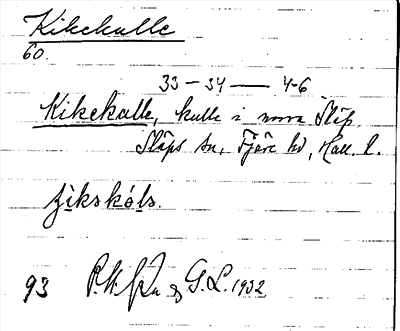 Kikekulle
60.
33 — 34 — 4-6
Kikekulle, kulle i norra Släp.
Släps sn, Fjäre hd, Hall. l.
93 G. L. 1932